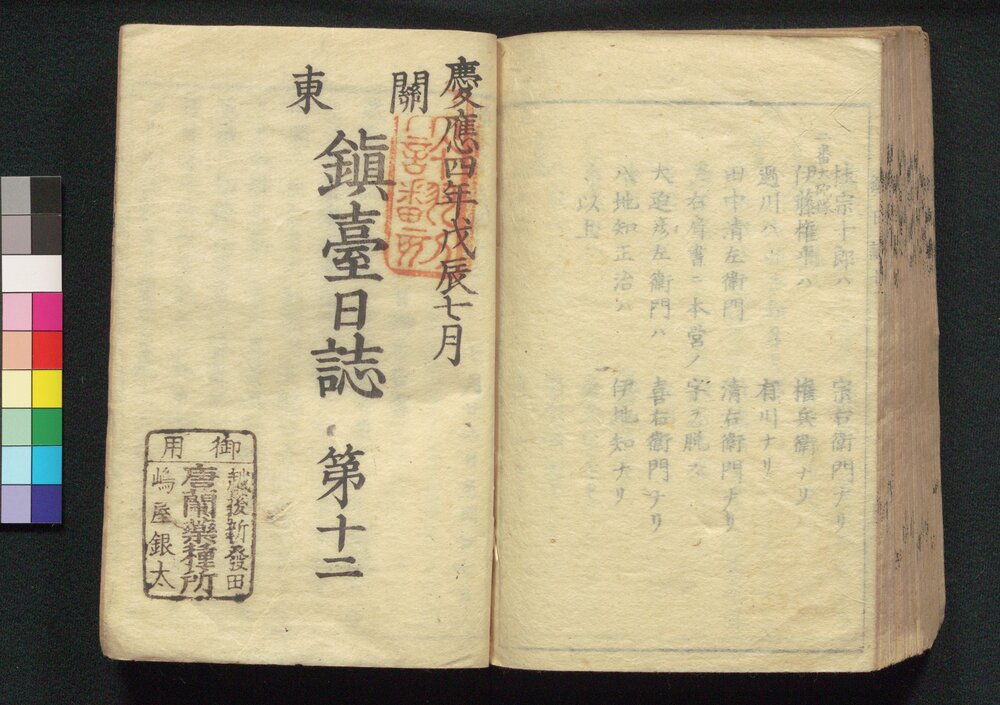 林宗十郎ハ 宗右衛門ナリ
伊藤権平ハ 権兵衛ナリ
有川ナリ
田中清左衛門 清右衛門ナリ
右肩書ニ本営ノ字ヲ脱ス
大迫彦左衛門ハ 喜右衛門ナリ
八地知正治ハ 伊地知ナリ
以上
慶應四年戊辰七月
關東
鎭臺日誌 第十二
御用
越後新發田
唐蘭藥種所
嶋屋銀太